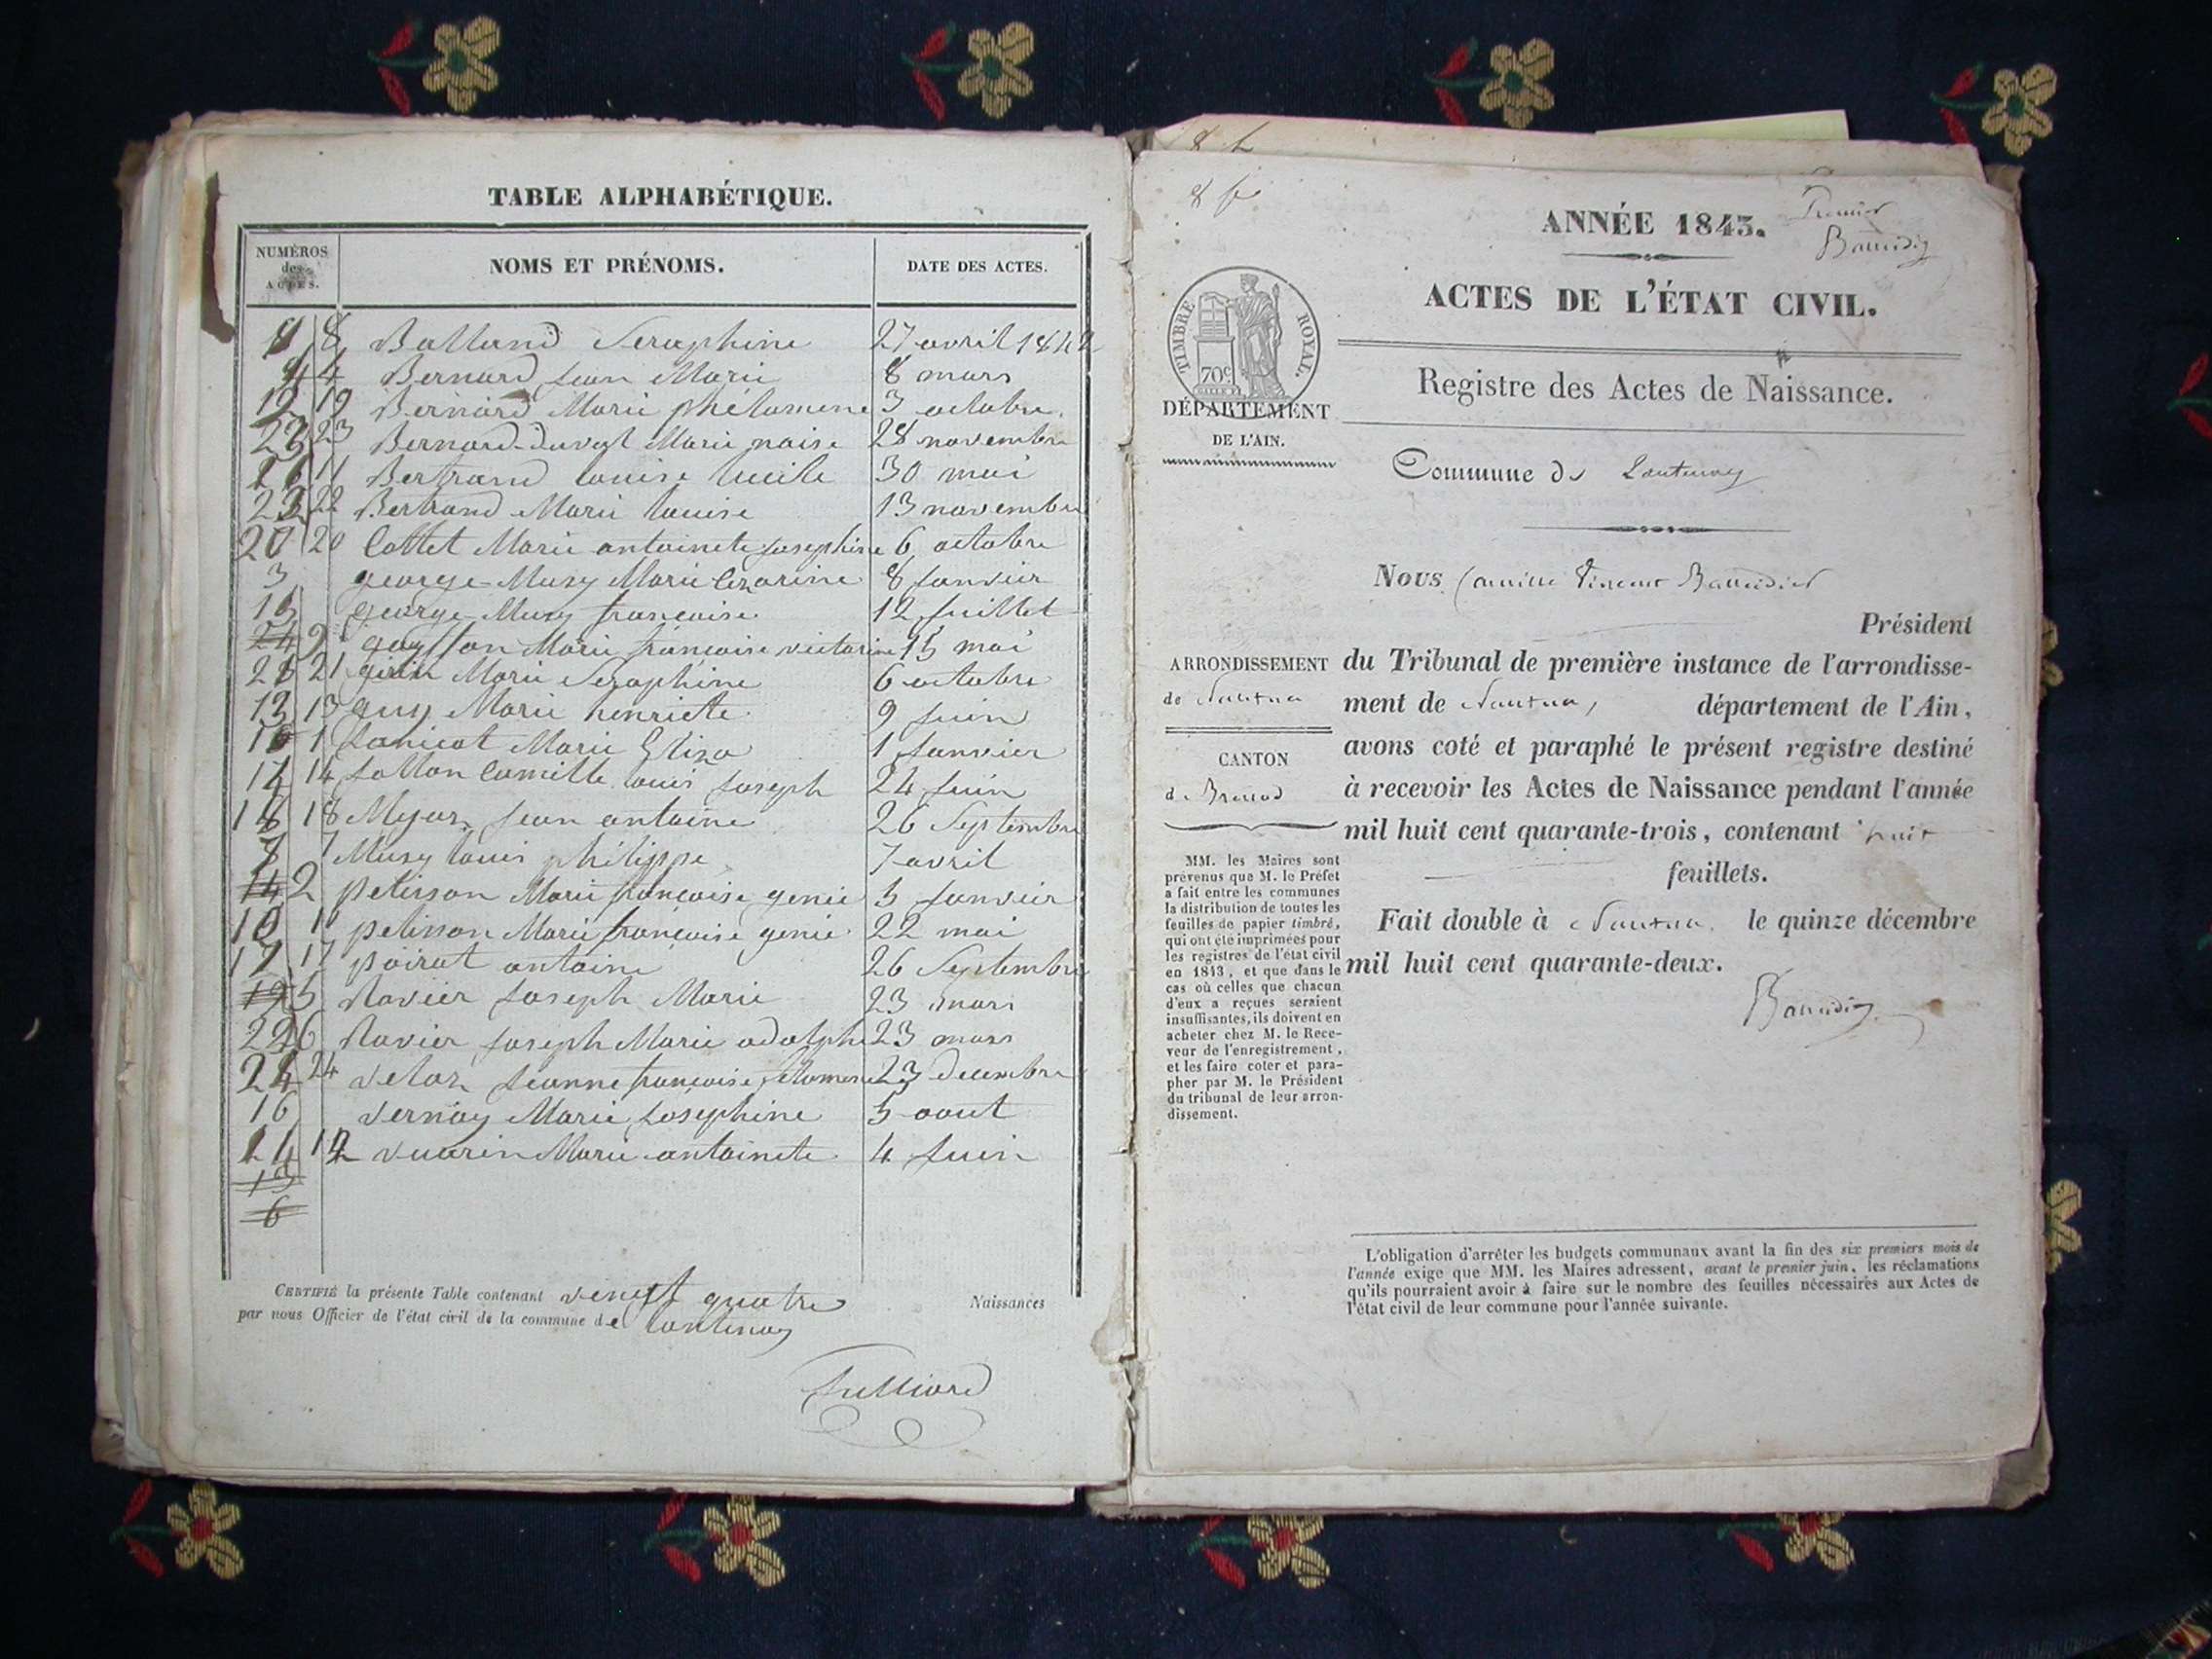 TABLE ALPHABÉTIQUE.
NUMÉROS des ACTES.
NOMS ET PRÉNOMS.
DATE DES ACTES.
8 8 Balland Seraphine 27 avril 1842
4 4 Bernard Jean Marie 8 mars
19 19 Bernard Marie phélomene 3 octobre
23 23 Bernard-Duvost Marie 28 novembre
11 Bertrand louise lucile 30 mai
22 Bertrand Marie louise 13 novembre
20 20 Collet Marie antoinete Josephine 6 octobre
3 george-Musy Marie Cezarine 8 Janvier
15 george-Musy françoise 12 Juillet
9 Marie françoise victorine 15 mai
21 girin Marie Seraphine 6 octobre
13 13 guy Marie henriete 9 Juin
1 Janicot Marie Eliza 1 Janvier
14 14 Jollon Camille louis Joseph 24 Juin
18 18 Myar Jean antoine 26 Septembre
7 7 Musy louis philippe 7 avril
14 2 petisson Marie françoise genie 3 Janvier
10 petisson Marie françoise genie 22 mai
17 17 poirat antoine 26 Septembre
5 Ravier Joseph Marie 23 mars
6 Ravier Joseph Marie adolphe 23 mars
24 24 Jeanne françoise 23 decembre
16 vernay Marie Josephine 5 aout
12 vuarin Marie antoinete 4 Juin
6
CERTIFIÉ la présente Table contenant vengt quatre Naissances
par nous Officier de l'état civil de la commune de lantenay
Julliard
Premier
ANNÉE 1843.
ACTES DE L'ÉTAT CIVIL.
TIMBRE ROYAL.
70c
DÉPARTEMENT
DE L'AIN.
Registre des Actes de Naissance.
Commune de Lantenay
Nous Camille Vincent
Président
ARRONDISSEMENT
de Nantua
CANTON
de Brenod
du Tribunal de première instance de l'arrondisse-
ment de Nantua, département de l'Ain,
avons coté et paraphé le présent registre destiné
à recevoir les Actes de Naissance pendant l'année
mil huit cent quarante-trois, contenant huit
feuillets.
Fait double à Nantua, le quinze décembre
mil huit cent quarante-deux.
MM. les Maires sont
prévenus que M. le Préfet
a fait entre les communes
la distribution de toutes les
feuilles de papier timbré,
qui ont été imprimées pour
les registres de l'état civil
en 1843, et que dans le
cas où celles que chacun
d'eux a reçues seraient
insuffisantes, ils doivent en
acheter chez M. le Rece-
veur de l'enregistrement,
et les faire coter et para-
pher par M. le Président
du tribunal de leur arron-
dissement.
L'obligation d'arrêter les budgets communaux avant la fin des six premiers mois de
l'année exige que MM. les Maires adressent, avant le premier juin, les réclamations
qu'ils pourraient avoir à faire sur le nombre des feuilles nécessaires aux Actes de
l'état civil de leur commune pour l'année suivante.